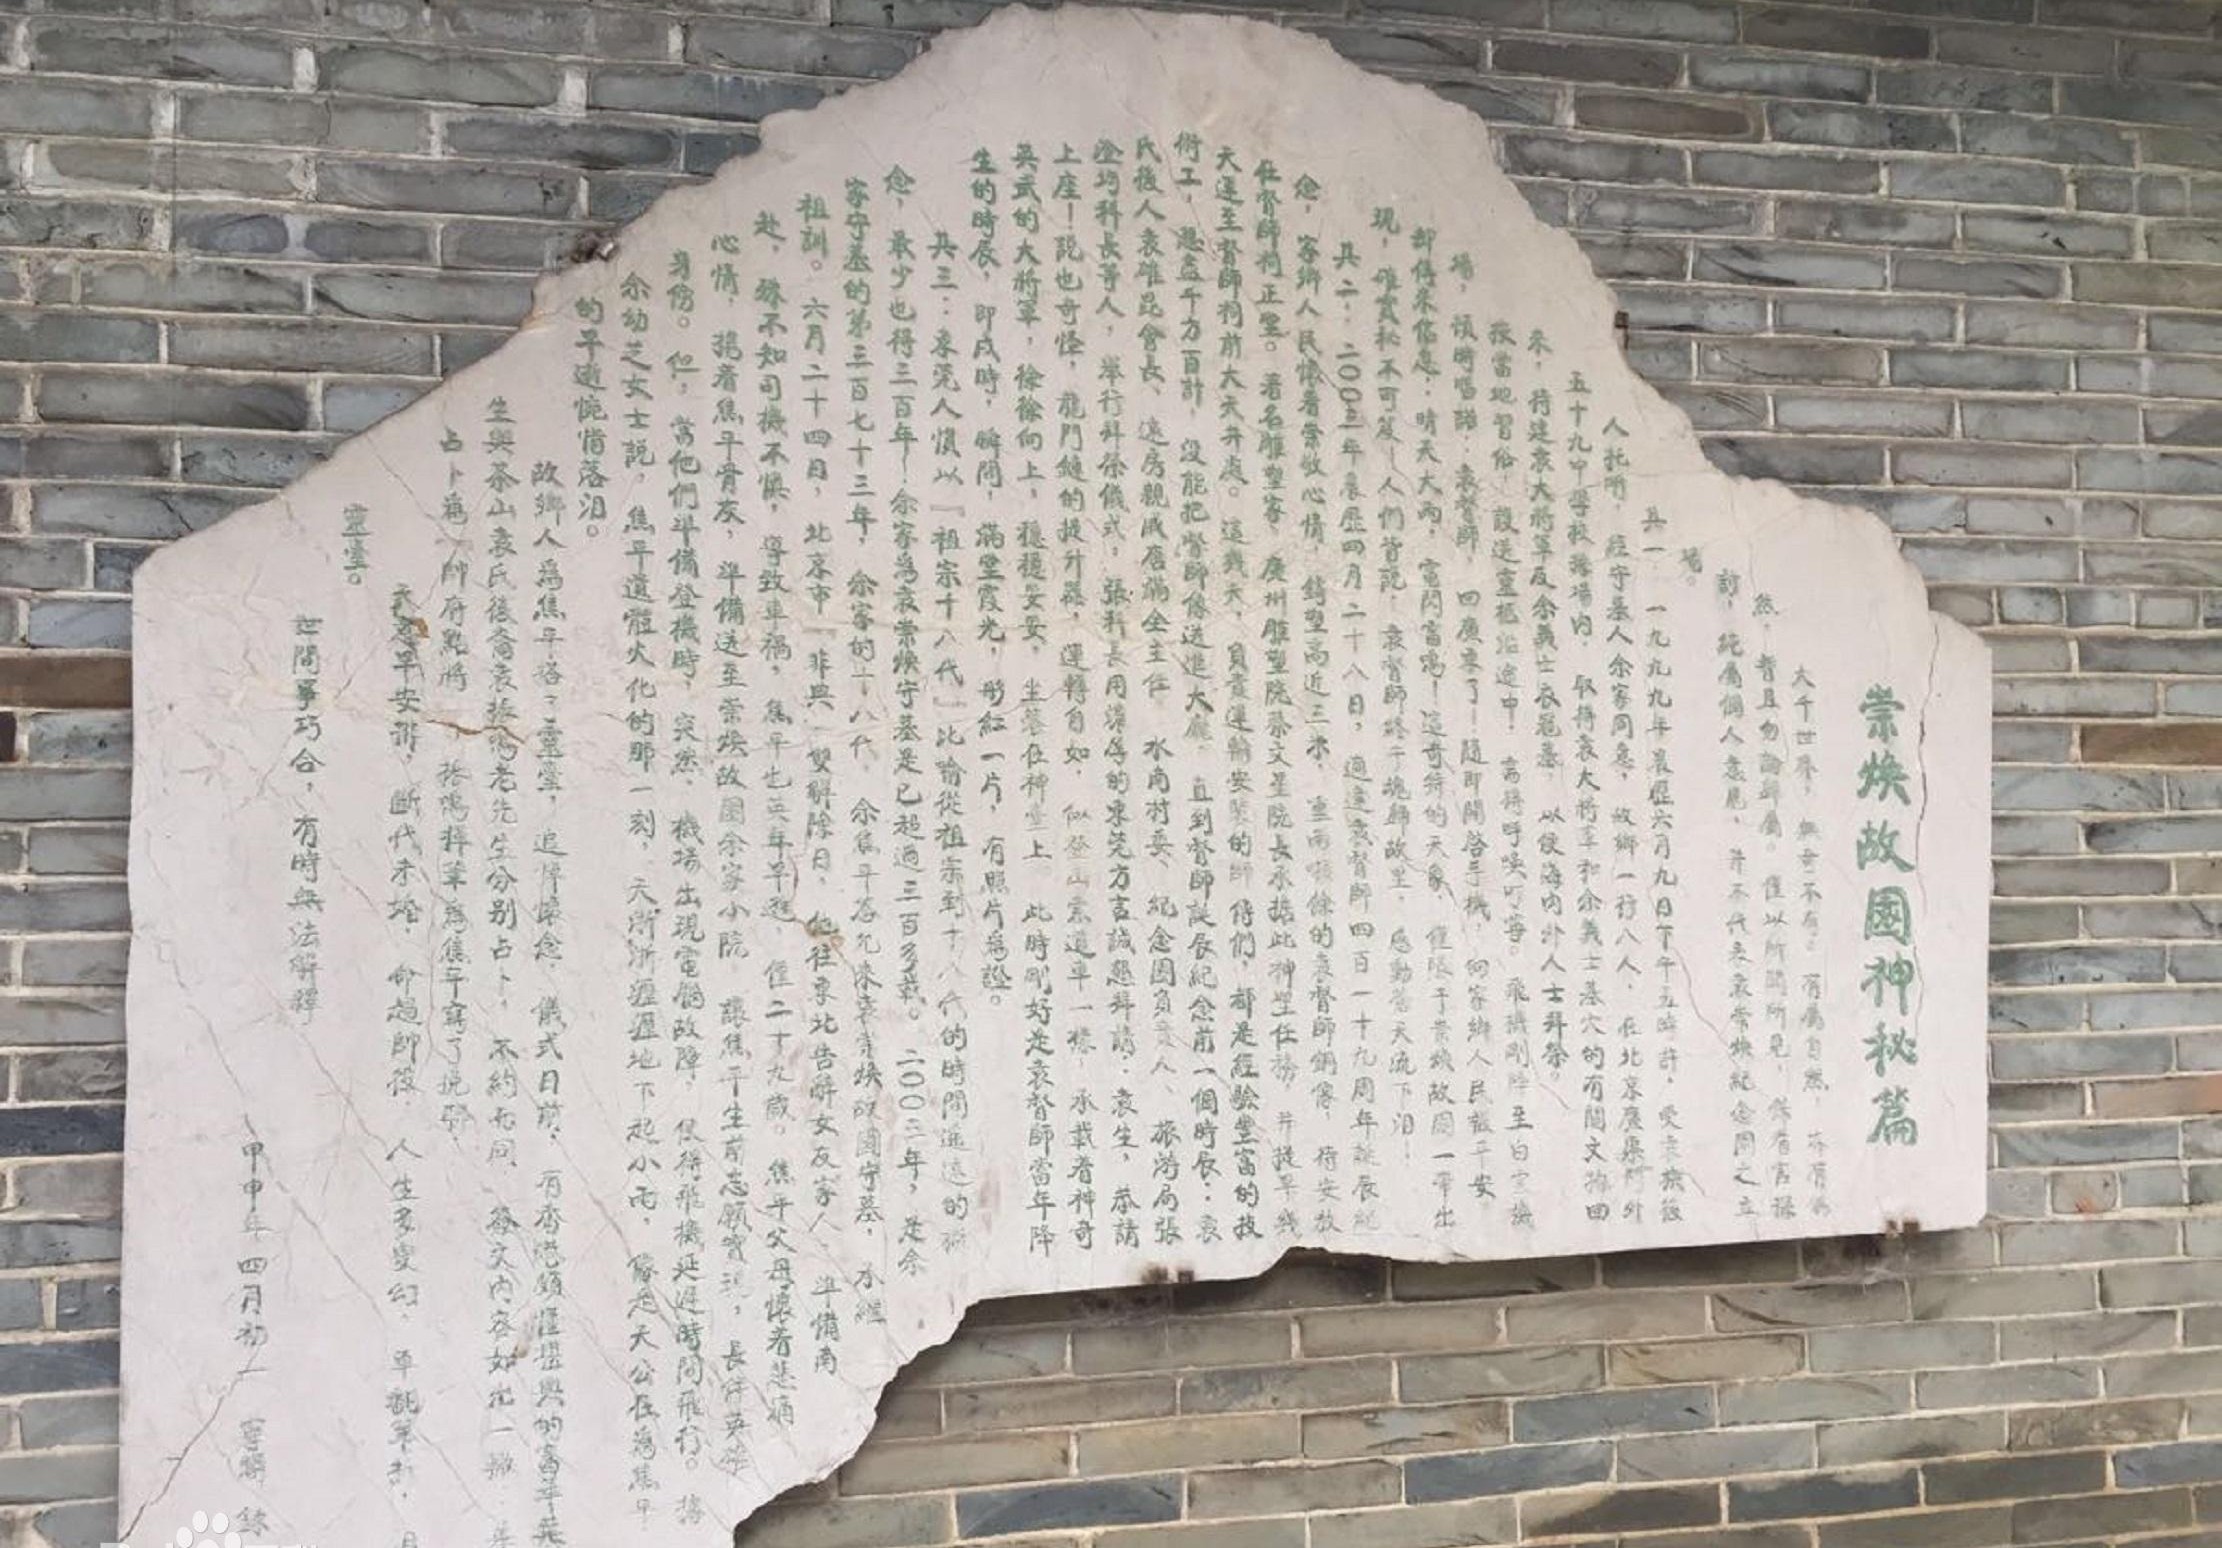 崇煥故園神秘篇
大千世界，無奇不有。有屬自然，亦有偶
然，暫且勿論歸屬。僅以所聞所見，錄有言採
訪，純屬個人意見，并不代表袁崇煥紀念園之立
場。
其一：一九九九年農歷六月九日下午五時許，受袁族後
人托咐，經守墓人余家同意，故鄉一行八人，在北京廣渠門外
五十九中學校操場內，取得袁大將軍和余義士墓穴的有關文物回
來，待建袁大將軍及余義士衣冠墓，以便海內外人士拜祭。
按當地習俗，護送靈柩沿途中，高得呼喚叮等。飛機剛降至白雲機
場，頓時唱諧：袁督師，回廣東了！隨即開啓手機，向家鄉人民報平安。
却傳來信息：晴天大雨，電閃雷鳴！這奇特的天象，僅限于崇煥故園一帶出
現，確實秘不可笈！人們皆說：袁督師終于魂歸故里，感動蒼天流下淚！
其二：二00三年農歷四月二十八日，適逢袁督師四百一十九周年誕辰紀
念，家鄉人民懷着崇敬心情，鑄塑高近三米，重兩噸餘的袁督師銅像，待安放
在督師祠正堂。著名雕塑家、廣州雕塑院蔡文星院長承擔此神聖任務，并提早幾
天運至督師祠前大天井處。這幾天，負責運輸安裝的師傅們，都是經驗豐富的技
術工，想盡千方百計，沒能把督師像送進大廳，直到督師誕辰紀念前一個時辰：袁
氏後人袁雄昆會長、遠房親戚唐錦全主任、水南村委、紀念園負責人、旅游局張
澄均科長等人，舉行拜祭儀式，張科長用濃厚的東莞方言誠懇拜請：袁生，恭請
上座！說也奇怪，龍門鏈的提升器，運轉自如，似登山索道車一樣，承載着神奇
英武的大將軍，徐徐向上，穩穩妥妥，坐落在神臺上。此時剛好是袁督師當年降
生的時辰，即戌時，瞬間，滿堂霞光，彤紅一片，有照片爲證。
其三：東莞人慣以『祖宗十八代』比喻從祖宗到十八代的時間遙遠的概
念，最少也得三百年！余家爲袁崇煥守墓是已超過三百多載。二00三年，是余
家守墓的第三百七十三年，余家的十八代，余焦平應允來袁崇煥故園守墓，承繼
祖訓。六月二十四日，北京市『非典』雙解除日，他往東北告辭女友家人，準備南
赴，殊不知司機不慎，導致車禍，焦平也英年早逝，僅二十九歲。焦平父母懷着悲痛
心情，捲着焦平骨灰，準備送至崇煥故園余家小院，讓焦平生前志願實現，長伴英雄
身傍。但，當他們準備登機時，突然，機場出現電腦故障，使得飛機延遲時間飛行。據
余幼芝女士說，焦平遺體火化的那一刻，天淅淅瀝瀝地下起小雨，像是天公在爲焦平
的早逝惋惜落淚。
故鄉人爲焦平搭了靈堂，追悼懷念，儀式日前，有香港頗懂堪輿的
生與茶山袁氏後裔袁振鳴老先生分別占卜，不約而同，簽文內容如出一轍：
占卜爲『帥府點將』，振鳴揮筆爲焦平寫了挽聯：
天意早安排，斷代未婚，命趨帥後，人生多變幻，
靈堂。
世間事巧合，有時無法解釋
甲申年四月初一
錄